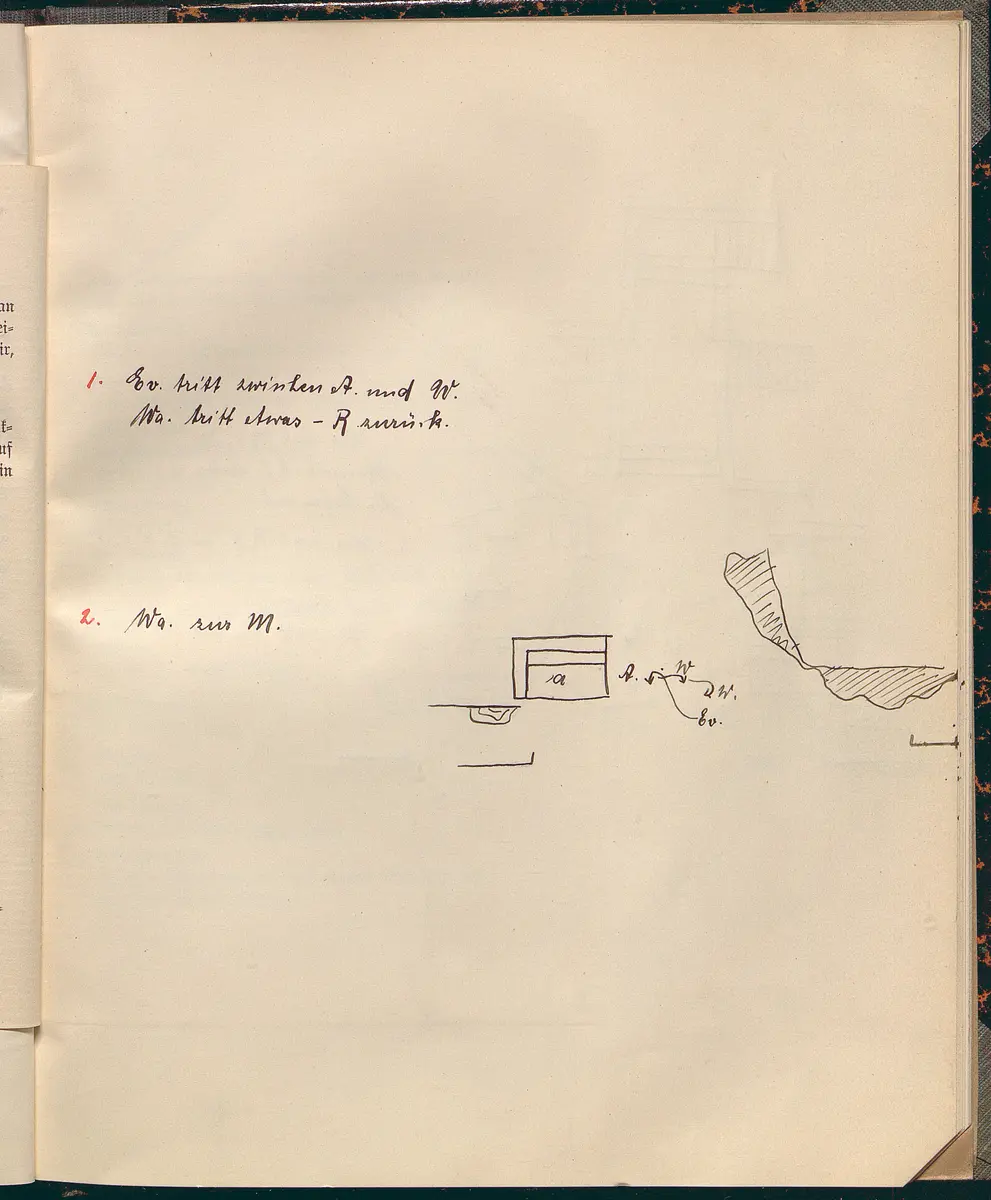 an
ei=
ir,
k=
uf
in
1. Ev. tritt zwischen A. und W.
Wa. tritt etwas – R zurück.
2. Wa. zur M.
a
A.
W
W.
Ev.